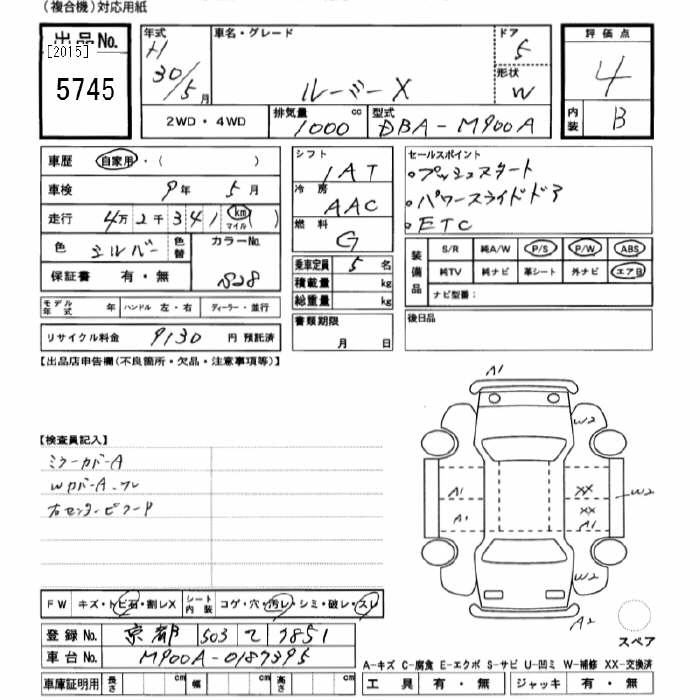 (複合機)対応用紙
出品No.
[2015]
5745
年式 H 30/5月
車名・グレード ルーミーX
ドア 5
形状 W
2WD・4WD
排気量 1000 cc
型式 DBA-M900A
評価点 4
内装 B
車歴 自家用・( )
車検 9年 5月
走行 4万2千341 km マイル
色 シルバー 色替 カラーNo. S28
保証書 有・無
モデル年式 年 ハンドル 左・右 ディーラー・並行
リサイクル料金 9130 円 預託済
シフト IAT
冷房 AAC
燃料 G
乗車定員 5名
積載量 kg
総重量 kg
書類期限 月 日
セールスポイント
・プッシュスタート
・パワースライドドア
・ETC
装備品 S/R 純A/W P/S P/W ABS
純TV 純ナビ 革シート 外ナビ エアB
ナビ型番:
後日品
【出品店申告欄(不良箇所・欠品・注意事項等)】
【検査員記入】
ミラーカバーA
WカバーA・ワレ
右センターピラード
A1
W2
A1
XX
W2
A1
XX
A1
W2
A2
スペア
FW キズ・トビ石・割レX シート内装 コゲ・穴・汚レ・シミ・破レ・スレ
登録No. 京都 503 て 7851
車台No. M900A-0187395
車庫証明用 長さ cm 幅 cm 高さ cm
A-キズ C-腐食 E-エクボ S-サビ U-凹ミ W-補修 XX-交換済
工具 有・無 ジャッキ 有・無